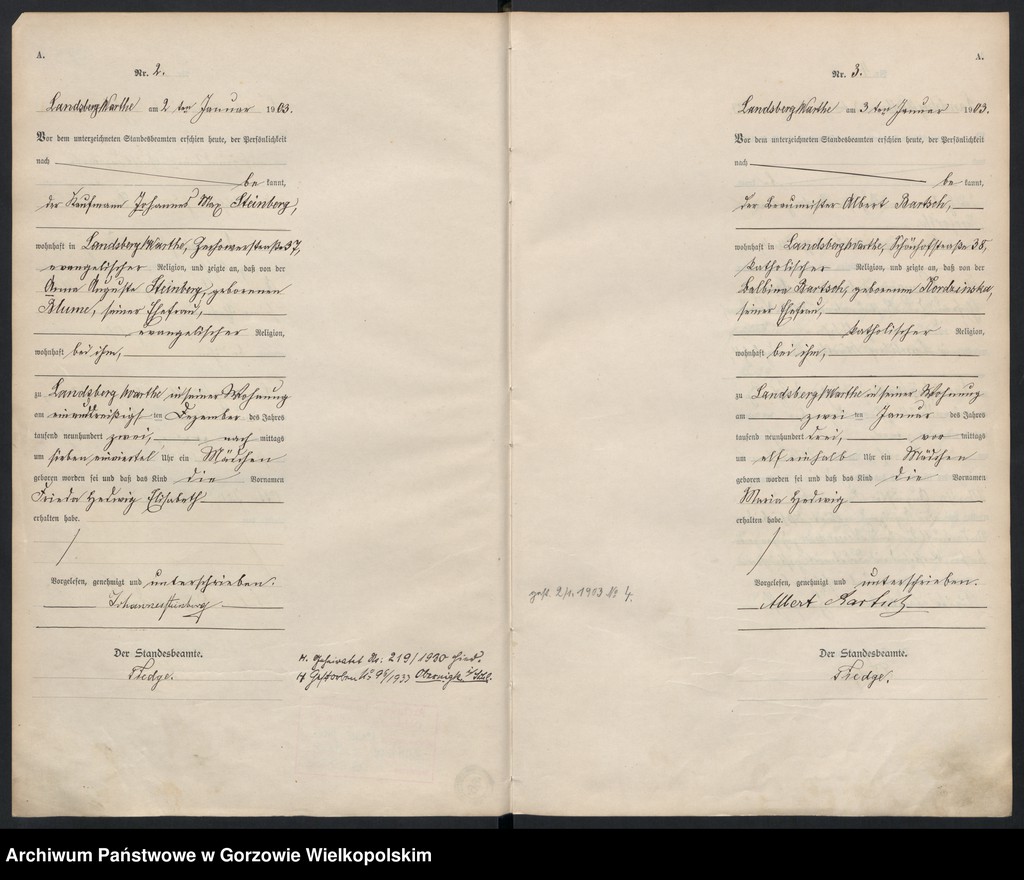 A.
Nr. 2.
Landsberg Warthe am 2ten Januar 1903.
Vor dem unterzeichneten Standesbeamten erschien heute, der Persönlichkeit
nach
be kannt,
der Kaufmann Johannes Max Steinberg,
wohnhaft in Landsberg Warthe, Zechowerstraße 37,
evangelischer Religion, und zeigte an, daß von der
Anna Auguste Steinberg, geborenen
Blume, seiner Ehefrau,
evangelischer Religion,
wohnhaft bei ihm,
zu Landsberg Warthe, in seiner Wohnung
am einunddreißigsten Dezember des Jahres
tausend neunhundert zwei, nach mittags
um sieben einviertel Uhr ein Mädchen
geboren worden sei und daß das Kind die Vornamen
Frieda Hedwig Elisabeth
erhalten habe.
Vorgelesen, genehmigt und unterschrieben.
Johannes Steinberg
Der Standesbeamte.
Thedge.
H. Geheiratet Nr: 219/1930 hier.
H Gestorben Nr 96/1937 Obernigk i/Schl.
A.
Nr. 3.
Landsberg Warthe am 3ten Januar 1903.
Vor dem unterzeichneten Standesbeamten erschien heute, der Persönlichkeit
nach
be kannt,
der Braumeister Albert Bartsch,
wohnhaft in Landsberg Warthe, Schönhofstraße 38,
katholischer Religion, und zeigte an, daß von der
Balbina Bartsch, geborenen Kordzinska,
seiner Ehefrau,
katholischer Religion,
wohnhaft bei ihm,
zu Landsberg Warthe in seiner Wohnung
am zwei ten Januar des Jahres
tausend neunhundert drei, vor mittags
um elf einhalb Uhr ein Mädchen
geboren worden sei und daß das Kind die Vornamen
Maria Hedwig
erhalten habe.
Vorgelesen, genehmigt und unterschrieben.
Albert Bartsch
gest. 2/1. 1903 Nr 4.
Der Standesbeamte.
Thedge.
Archiwum Państwowe w Gorzowie Wielkopolskim